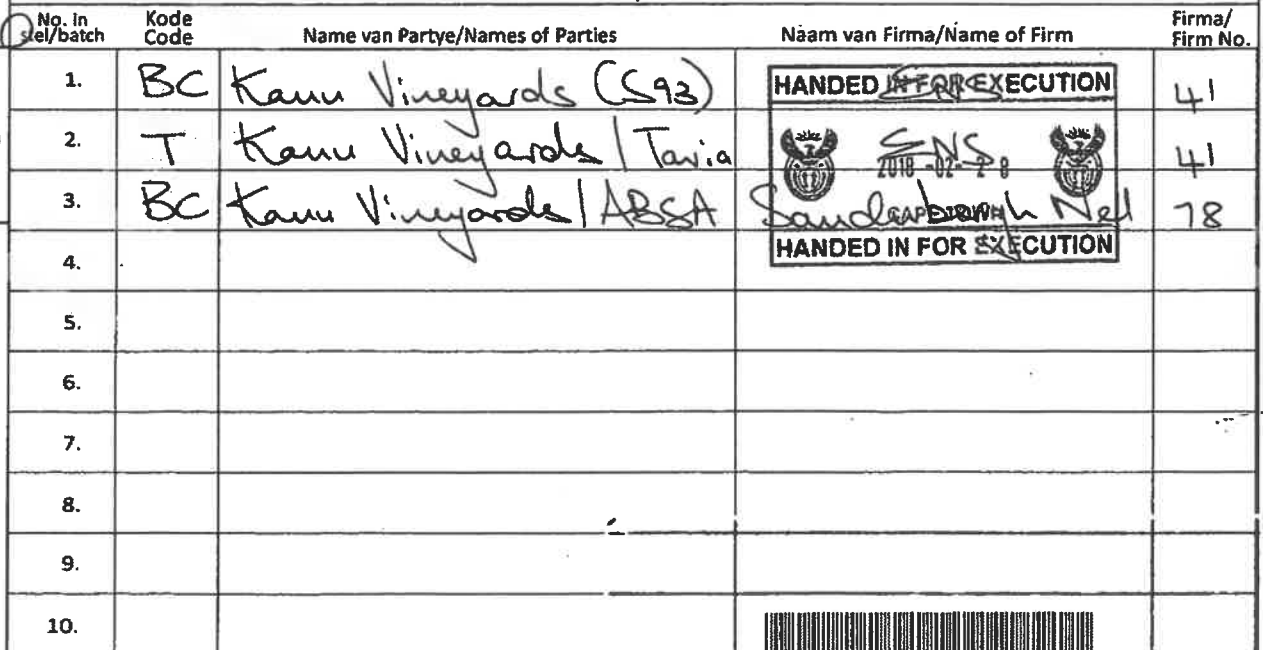 No. In stel/batch Kode Code Name van Partye/Names of Parties Naam van Firma/Name of Firm Firma/ Firm No.
1. BC Kanu Vineyards (S93) ENS 41
HANDED IN FOR EXECUTION
2. T Kanu Vineyards / Tavia ENS 41
2018 -02- 28
3. BC Kanu Vineyards / ABSA Sandenbergh Nel 78
HANDED IN FOR EXECUTION
4.
5.
6.
7.
8.
9.
10.